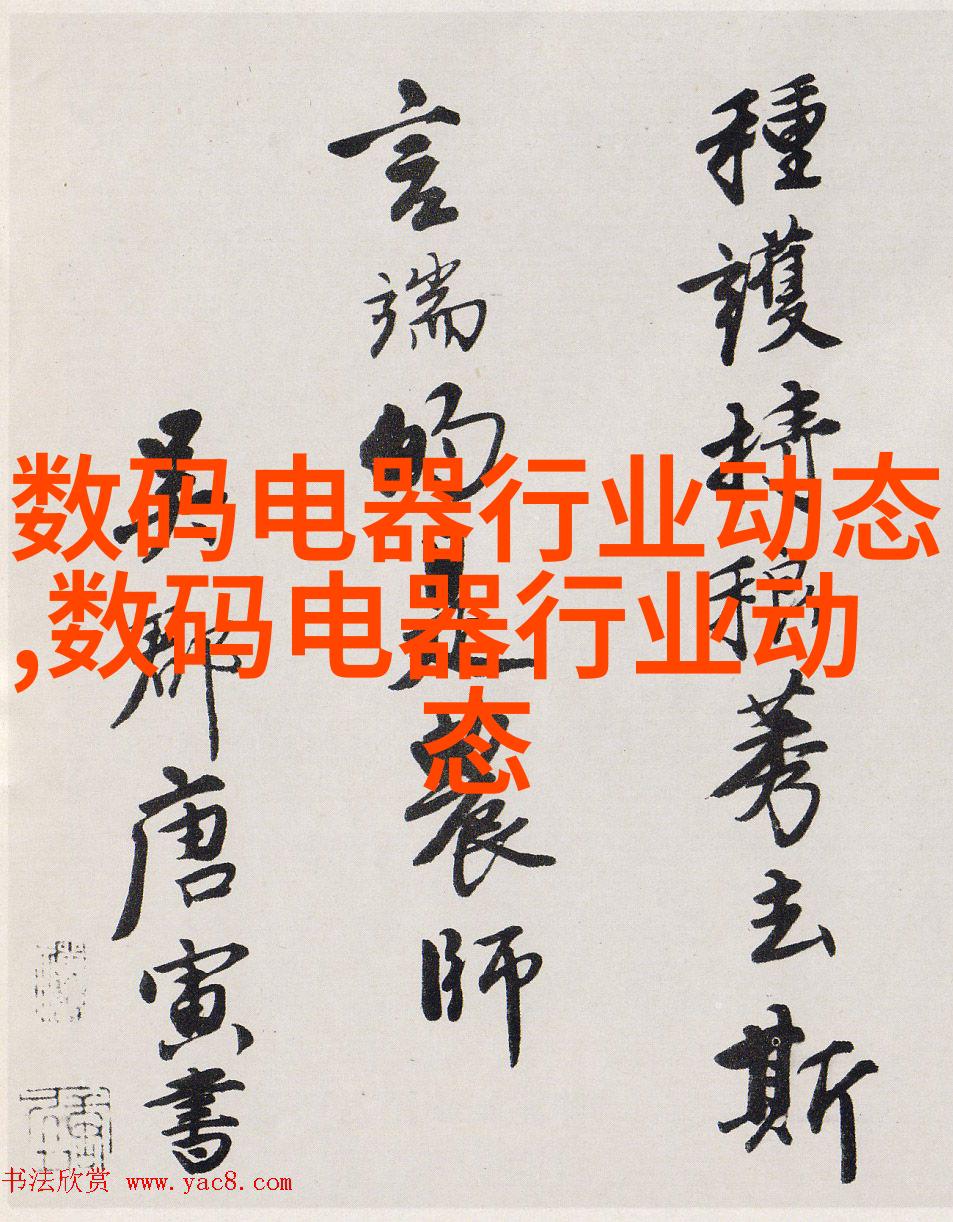 種護持稂莠去斯
言端的是農師
吳郡唐寅書
数码电器行业动态
,数码电器行业动
态
书法欣赏 www.yac8.com